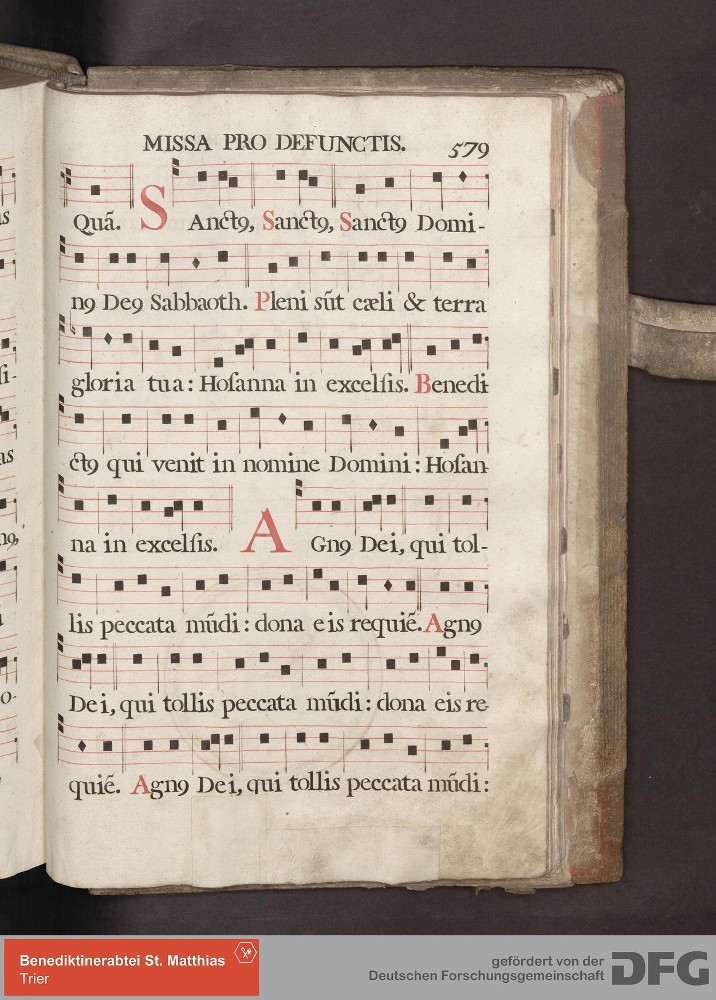 MISSA PRO DEFUNCTIS. 579
Quã. SAnctꝯ, Sanctꝯ, Sanctꝯ Domi-
nꝯ Deꝯ Sabbaoth. Pleni sũt cæli & terra
gloria tua: Hoſanna in excelſis. Benedi-
ctꝯ qui venit in nomine Domini: Hoſan-
na in excelſis. AGnꝯ Dei, qui tol-
lis peccata mũdi: dona eis requiẽ. Agnꝯ
Dei, qui tollis peccata mũdi: dona eis re-
quiẽ. Agnꝯ Dei, qui tollis peccata mũdi:
Benediktinerabtei St. Matthias
Trier
gefördert von der
Deutschen Forschungsgemeinschaft
DFG